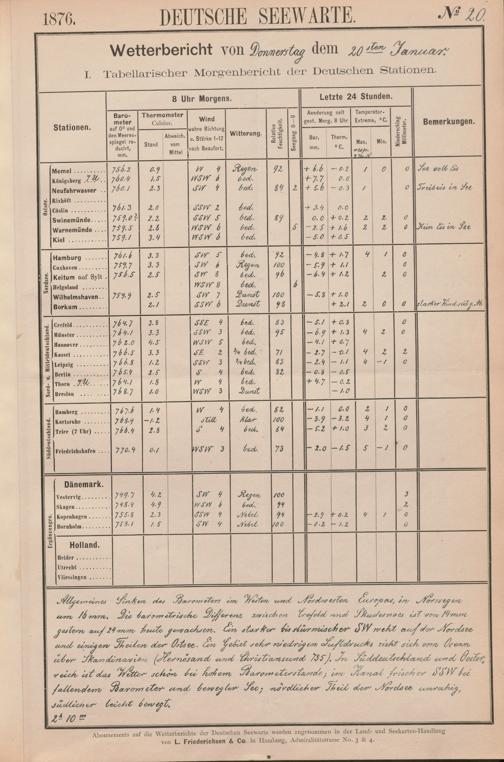 1876. DEUTSCHE SEEWARTE. No 20.
Wetterbericht von Donnerstag dem 20sten Januar.
I. Tabellarischer Morgenbericht der Deutschen Stationen.
Stationen. 8 Uhr Morgens. Letzte 24 Stunden. Bemerkungen.
Barometer auf 0° und den Meeresspiegel reducirt, mm. Thermometer Celsius. Stand Abweich. vom Mittel Wind wahre Richtung u. Stärke 1-12 nach Beaufort. Witterung. Relative Feuchtigkeit. Seegang 0-9 Aenderung seit gest. Morg. 8 Uhr Bar. mm. Therm. °C. Temperatur-Extreme, °C. Max. Min. Niederschlag Millimeter.
Ostsee.
Memel 756.2 0.9 W 4 Regen 92 +6.6 -0.2 1 0 0 See voll Eis
Königsberg 7 U. 760.9 1.5 WSW 6 bed. +7.7 0.0 0
Neufahrwasser 760.1 2.3 SW 4 bed. 84 2 +5.6 -0.3 1 0 Treibeis in See
Rixhöft
Cöslin 761.3 2.0 SSW 2 bed. +3.4 0.0
Swinemünde 759.0? 2.2 SSW 5 bed. 89 0.0 +0.2 2 2 0
Warnemünde 759.5 2.8 WSW 6 bed. 5 -2.5 +1.6 2 2 0 Kein Eis in See
Kiel 759.1 3.4 WSW 6 bed. -5.0 +0.5
Nordsee.
Hamburg 761.6 3.3 SW 5 bed. 92 -4.8 +1.7 4 1 0
Cuxhaven 759.7 3.3 SW 6 Regen 100 -5.9 +1.1 0
Keitum auf Sylt 756.5 2.5 SW 8 bed. 96 -6.4 +1.2 2 0
Helgoland WSW 8 bed. 6
Wilhelmshaven 759.9 2.5 SW 7 Dunst 100 -5.8 +1.0
Borkum 2.1 SSW 6 Dunst 98 +2.1 2 0 0
Nord- u. Mitteldeutschland.
Crefeld 764.7 3.8 SSE 4 bed. 83 -5.1 +0.8 0
Münster 764.1 3.3 SSW 3 bed. 95 -6.9 +1.3 4 2 0
Hannover 762.0 4.5 WSW 5 bed. -4.1 +0.7
Kassel 766.5 3.3 SE 2 bed. 71 -2.7 -0.1 4 2 2
Leipzig 766.8 1.2 SSW 3 bed. 83 -2.4 -1.1 4 -1 0
Berlin 765.4 2.5 S 4 bed. 82 -0.8 -0.5
Thorn 7 U. 764.1 1.8 W 4 bed. +4.7 -0.2
Breslau 768.7 1.0 WSW 3 Dunst -1.0
Süddeutschland.
Bamberg 767.6 1.4 W 4 bed. 82 -1.1 6.0 2 1 0
Karlsruhe 768.4 -1.2 still klar 100 -3.9 -3.2 4 1 0
Trier (7 Uhr) 766.4 2.8 S 4 bed. 64 -5.2 +1.0 3 2 0
Friedrichshafen 770.9 0.1 WSW 3 bed. 73 -2.0 -1.5 5 -1 0
Ergänzungen.
Dänemark.
Vestervig 749.7 4.2 SW 4 Regen 100 3
Skagen 748.4 4.9 WSW 6 bed. 94 2
Kopenhagen 755.8 2.3 SSW 4 Nebel 94 -2.9 +0.2 4 1 0
Bornholm 758.1 1.5 SW 4 Nebel 100 -1.2 -1.2 0
Holland.
Helder
Utrecht
Vlissingen
Allgemeines Sinken des Barometers im Westen und Nordwesten Europas, in Norwegen
um 16 mm. Die barometrische Differenz zwischen Crefeld und Skudesnaes ist von 14 mm
gestern auf 24 mm heute gewachsen. Ein starker bis stürmischer SW weht auf der Nordsee
und einigen Theilen der Ostsee. Ein Gebiet sehr niedrigen Luftdrucks zieht sich vom Ocean
über Skandinavien (Hernösand und Christiansund 735). In Süddeutschland und Oester-
reich ist das Wetter schön bei hohem Barometerstande; im Kanal frischer SSW bei
fallendem Barometer und bewegter See; nördlicher Theil der Nordsee unruhig,
südlicher leicht bewegt.
2h 10m
Abonnements auf die Wetterberichte der Deutschen Seewarte werden angenommen in der Land- und Seekarten-Handlung
von L. Friederichsen & Co. in Hamburg, Admiralitätstrasse No. 3 & 4.